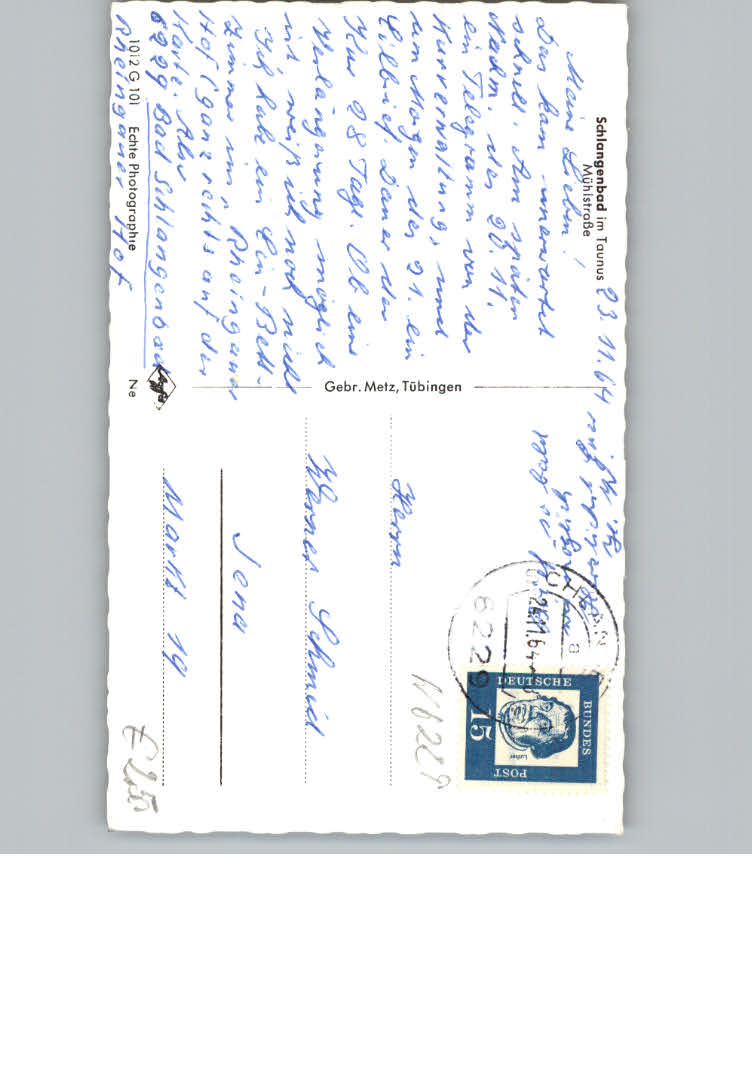 Schlangenbad im Taunus
Mühlstraße
23.11.64
Meine Lieben!
Das kam unerwartet
schnell. Am späten
Nachm. des 20.11.
ein Telegramm von der
Kurverwaltung, und
am Morgen des 21. ein
Eilbrief. Dauer der
Kur 28 Tage. Ob eine
Verlängerung möglich
ist, weiß ich noch nicht
Ich habe ein Ein-Bett-
Zimmer im "Rheingauer
Hof (ganz rechts auf der
Karte. Abs
6229 Bad Schlangenbad
Rheingauer Hof
1012 G 101 Echte Photographie
Agfa
Ne
Gebr. Metz, Tübingen
Herrn
Werner Schmidt
Jena
Markt 19
6229
24.11.64
a
DEUTSCHE
BUNDES
POST
15
Luther
N6229
£ 2.50